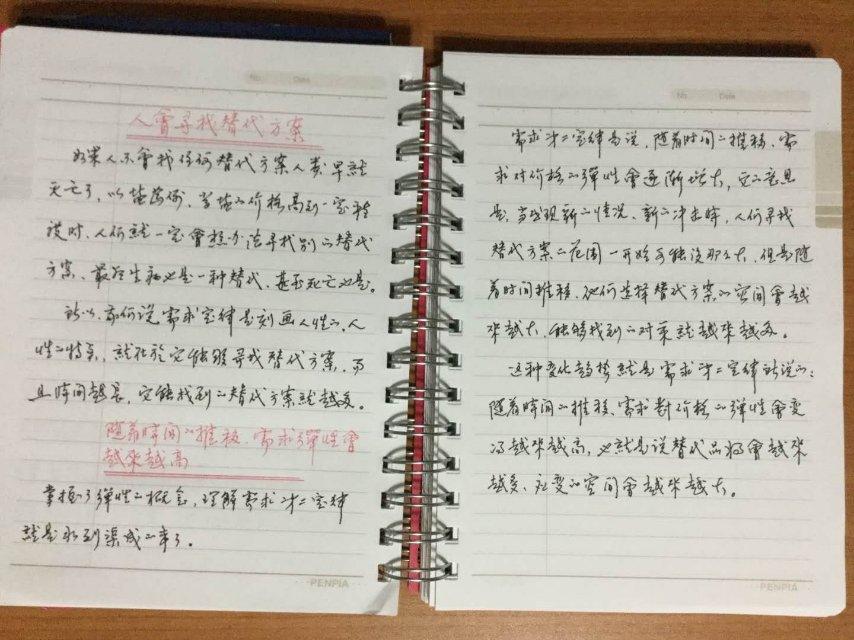 No.    Date
人會寻找替代方案
如果人不會找任何替代方案人类早就
灭亡了，以盐为例，当盐的价格高到一定程
度时、人们就一定會想办法寻找别的替代
方案、最后生病也是一种替代、甚至死亡也是。
所以、我们说需求定律是刻画人性的，人
性的特点，就在於它能够寻找替代方案，而
且時间越長，它能找到的替代方案就越多。
随着時间的推移、需求弹性會
越來越高
掌握了彈性的概念，理解需求第二定律
就是水到渠成的事了。
PENPIA
No.    Date
需求第二定律是说，随着时间的推移、需
求对价格的彈性會逐渐增大，它的意思
是、当出现新的情况、新的冲击時，人们寻找
替代方案的范围一开始可能没那么大，但是随
着时间推移、他们选择替代方案的空间會越
來越大、能够找到的对策就越來越多。
这种变化趋势就是需求第二定律所说的：
随着時间的推移、需求對价格的彈性會变
得越來越高，也就是说替代品将會越來
越多、应变的空间會越來越大。
PENPIA